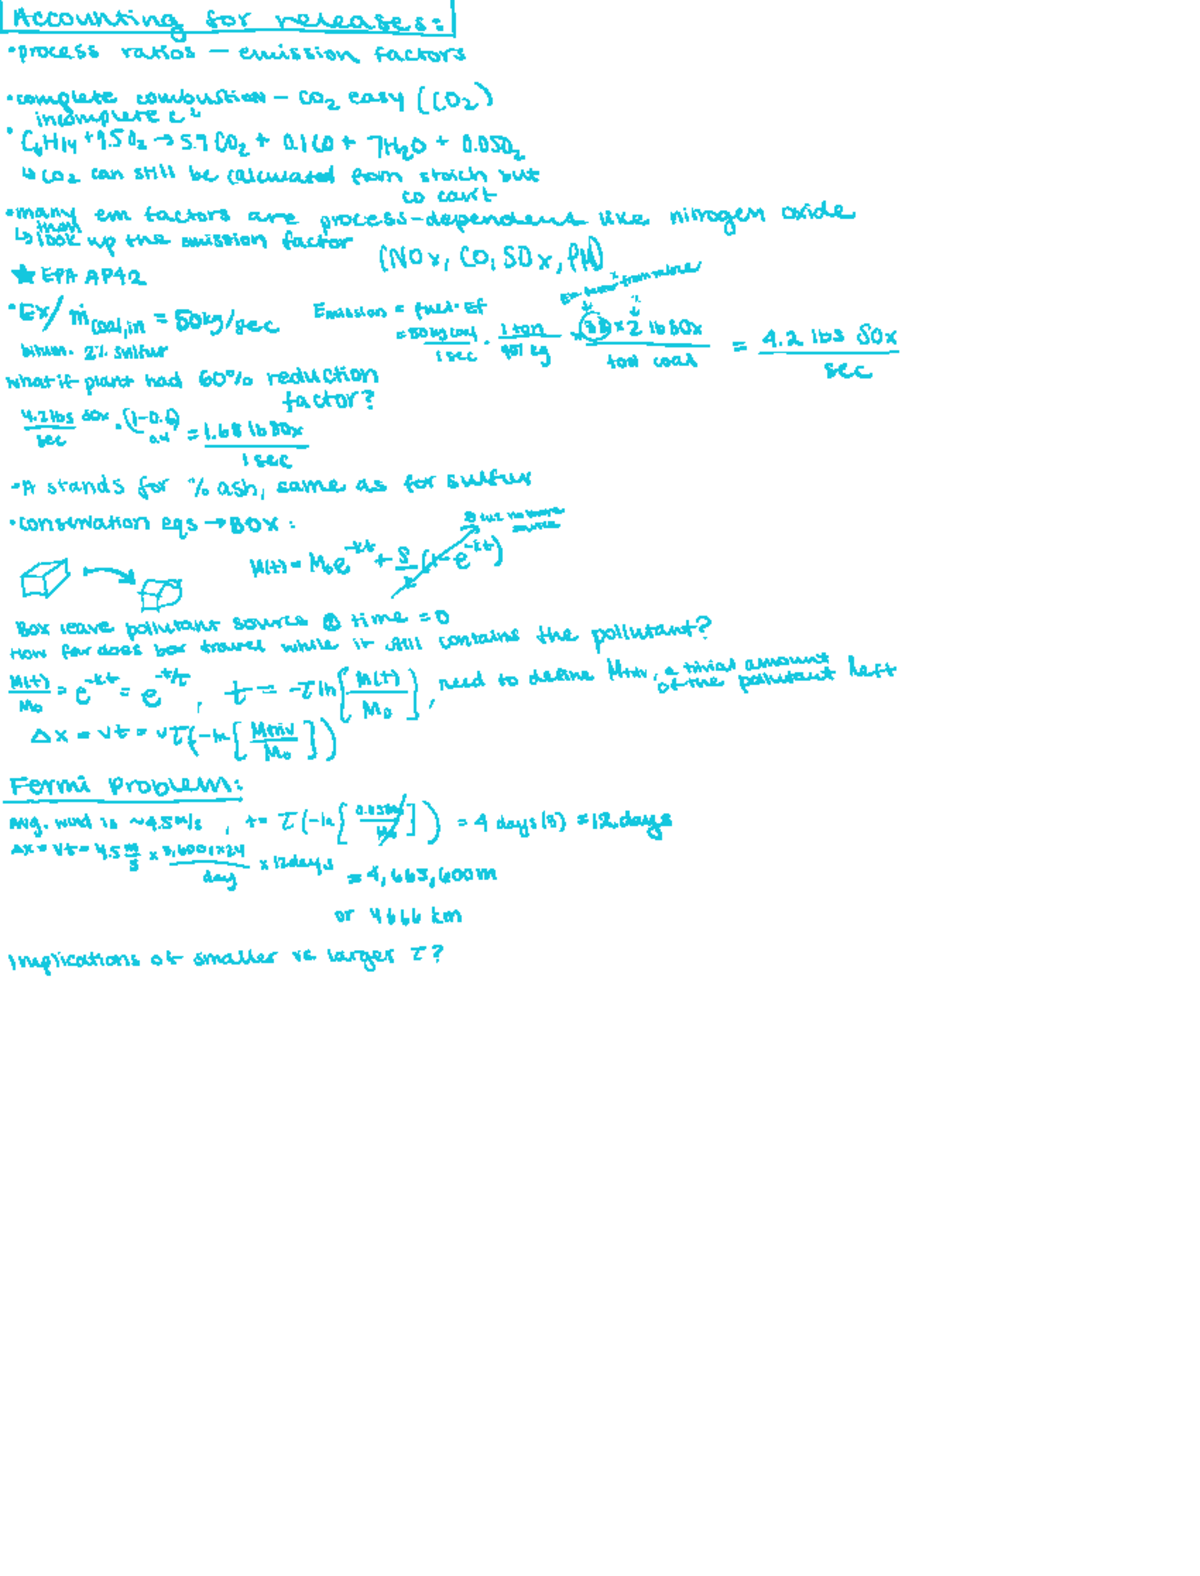 Accounting for releases:
•process ratios — emission factors
•complete combustion — CO2 easy (CO2)
incomplete c"
• C6H14 + 9.5O2 → 5.9 CO2 + 0.1CO + 7H2O + 0.05O2
↳ CO2 can still be calculated from stoich but
CO can't
•many em factors are process-dependent like nitrogen oxide
↳ then look up the emission factor (NOx, CO, SOx, PM)
★ EPA AP42
•Ex/ ṁ coal,in = 50kg/sec
bitum. 2% sulfur
Emission = fuel · Ef
= 50 kg coal / 1 sec · 1 ton / 907 kg × 38 × 2 lb SOx / ton coal = 4.2 lbs SOx / sec
what if plant had 60% reduction
factor?
4.2 lbs SOx / sec · (1-0.6) 0.4 = 1.68 lb SOx / 1 sec
•A stands for % ash, same as for sulfur
•conservation eqs → BOX:
M(t) = M0e^-kt + S/k (1-e^-kt)
Box leave pollutant source @ time = 0
How far does box travel while it still contains the pollutant?
M(t)/M0 = e^-kt = e^-t/τ, t = -τ ln[M(t)/M0], need to define Mtriv, a trivial amount of the pollutant left
Δx = vt = vτ(-ln[Mtriv/M0])
Fermi Problem:
Avg. wind is ~4.5m/s, t = τ(-ln[0.05M0/M0]) = 4 days(3) = 12.days
Δx = vt = 4.5 m/s × 3,600(x24 / day × 12days = 4,665,600m
or 4666 km
Implications of smaller vs. larger τ?